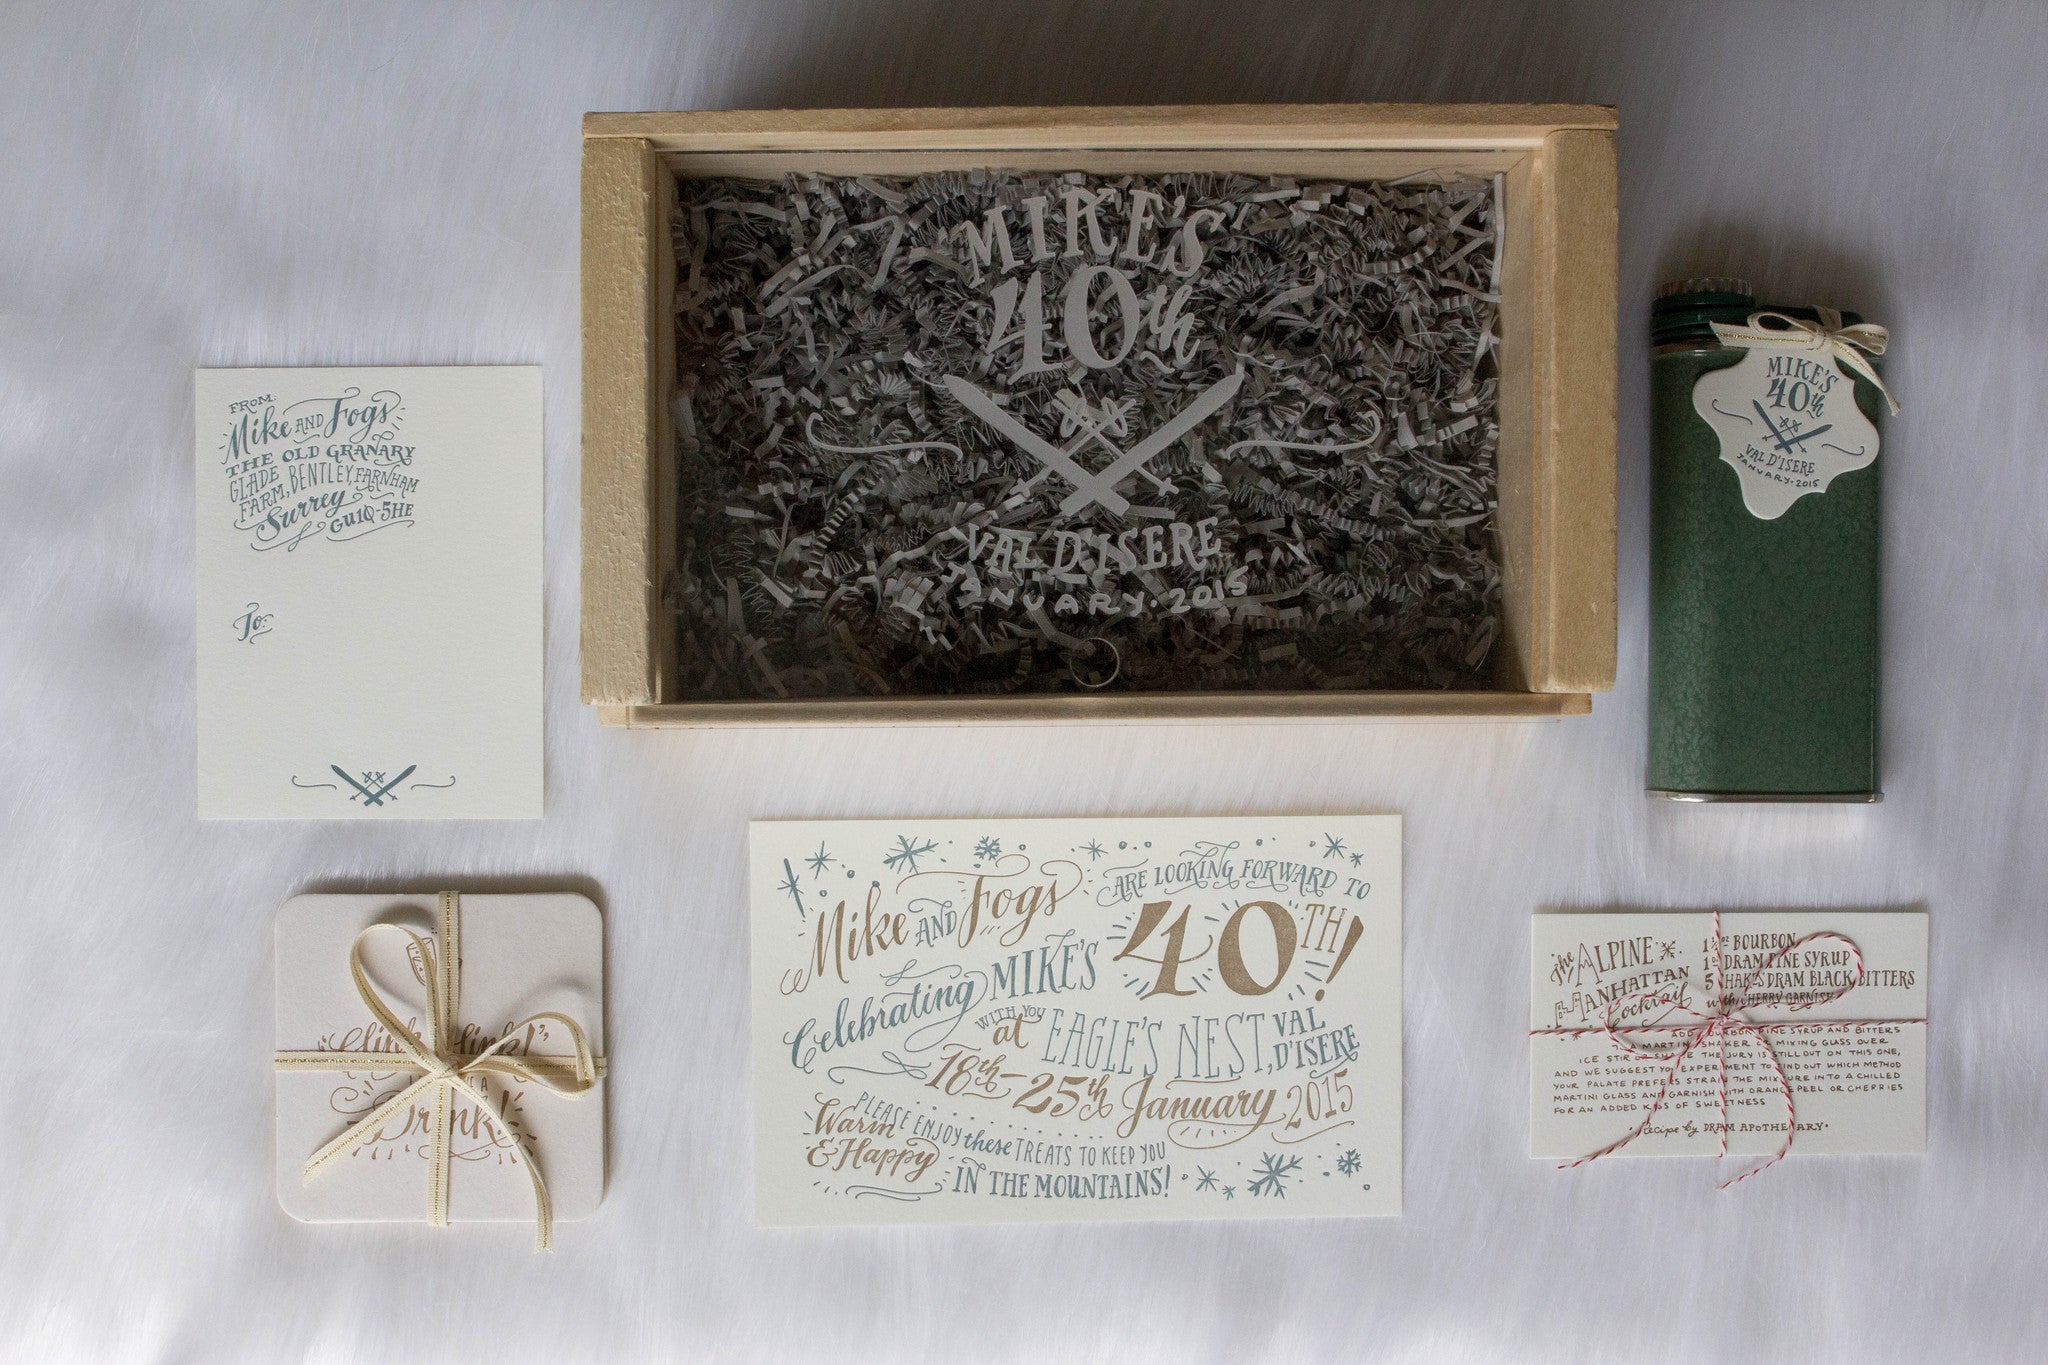 MIKE'S
40th
VAL D'ISERE
JANUARY • 2015
FROM:
Mike AND Fogs
THE OLD GRANARY
GLADE
FARM, BENTLEY, FARNHAM
Surrey
GU10-5HE
To:
MIKE'S
40th
VAL D'ISERE
JANUARY • 2015
"Clink Clink!"
A
Drink!
Mike AND Fogs ARE LOOKING FORWARD TO
Celebrating MIKE'S 40TH!
WITH YOU
at EAGLE'S NEST, VAL D'ISERE
18th–25th January 2015
PLEASE ENJOY these TREATS TO KEEP YOU
Warm & Happy
IN THE MOUNTAINS!
The ALPINE
MANHATTAN
Cocktail
1½ oz BOURBON
1 oz DRAM PINE SYRUP
5 SHAKES DRAM BLACK BITTERS
with CHERRY GARNISH
ADD BOURBON, PINE SYRUP AND BITTERS
TO A MARTINI SHAKER OR MIXING GLASS OVER
ICE STIR OR SHAKE THE JURY IS STILL OUT ON THIS ONE,
AND WE SUGGEST YOU EXPERIMENT TO FIND OUT WHICH METHOD
YOUR PALATE PREFERS STRAIN THE MIXTURE INTO A CHILLED
MARTINI GLASS AND GARNISH WITH ORANGE PEEL OR CHERRIES
FOR AN ADDED KISS OF SWEETNESS
• Recipe by DRAM APOTHECARY •